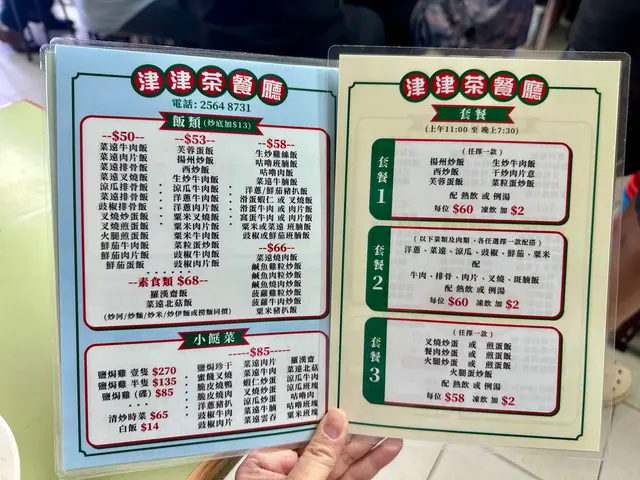 津津茶餐廳
電話: 2564 8731
飯類 (炒底加$13)
--$50--
菜遠牛肉飯
菜遠肉片飯
菜遠排骨飯
菜遠叉燒飯
涼瓜排骨飯
味菜排骨飯
豉椒排骨飯
叉燒炒蛋飯
叉燒煎蛋飯
火腿煎蛋飯
鮮茄牛肉飯
鮮茄肉片飯
鮮茄蛋飯
--$53--
芙蓉蛋飯
揚州炒飯
西炒飯
生炒牛肉飯
涼瓜牛肉飯
洋蔥牛肉飯
洋蔥肉片飯
粟米叉燒飯
粟米肉片飯
粟米牛肉飯
菜粒蛋炒飯
豉椒牛肉飯
豉椒肉片飯
--$58--
生炒雞絲飯
咕嚕斑腩飯
咕嚕肉飯
菜遠牛腩飯
洋蔥/鮮茄豬扒飯
滑蛋蝦仁 或 叉燒飯
滑蛋牛肉 或 肉片飯
窩蛋牛肉 或 肉片飯
粟米或菜遠 斑腩飯
豉椒或鮮茄斑腩飯
--$66--
菜遠燒肉飯
鹹魚雞粒炒飯
鹹魚肉粒炒飯
鹹魚燒肉炒飯
菠蘿雞粒炒飯
菠蘿牛肉炒飯
粟米豬扒飯
--素食類 $68--
羅漢齋飯
菜遠北菇飯
(炒河/炒麵/炒米/炒伊麵或撈麵同價)
小餸菜
鹽焗雞 壹隻 $270
鹽焗雞 半隻 $135
鹽焗雞 (碟) $85
清炒時菜 $65
白飯 $14
--$85--
鹽焗珍干
蜜餞叉燒
脆皮燒鴨
脆皮燒肉
洋蔥豬扒
豉椒牛肉
豉椒肉片
菜遠肉片
菜遠牛肉
蝦仁炒蛋
叉燒炒蛋
涼瓜炒蛋
菜遠牛腩
菜遠雲吞
羅漢齋
菜遠北菇
涼瓜牛肉
涼瓜斑塊
咕嚕肉
咕嚕斑塊
粟米斑塊
津津茶餐廳
套餐
(上午11:00 至 晚上7:30)
套餐1
(任擇一款)
揚州炒飯 生炒牛肉飯
西炒飯 干炒肉片意
芙蓉蛋飯 菜粒蛋炒飯
配 熱飲 或 例湯
每位 $60 凍飲 加 $2
套餐2
(以下菜類及肉類，各任選擇一款配搭)
洋蔥、菜遠、涼瓜、豉椒、鮮茄、粟米
配
牛肉、排骨、肉片、叉燒、斑腩飯
配 熱飲 或 例湯
每位 $60 凍飲 加 $2
套餐3
(任擇一款)
叉燒炒蛋 或 煎蛋飯
餐肉炒蛋 或 煎蛋飯
火腿炒蛋 或 煎蛋飯
火腿蛋炒飯
配 熱飲 或 例湯
每位 $58 凍飲 加 $2